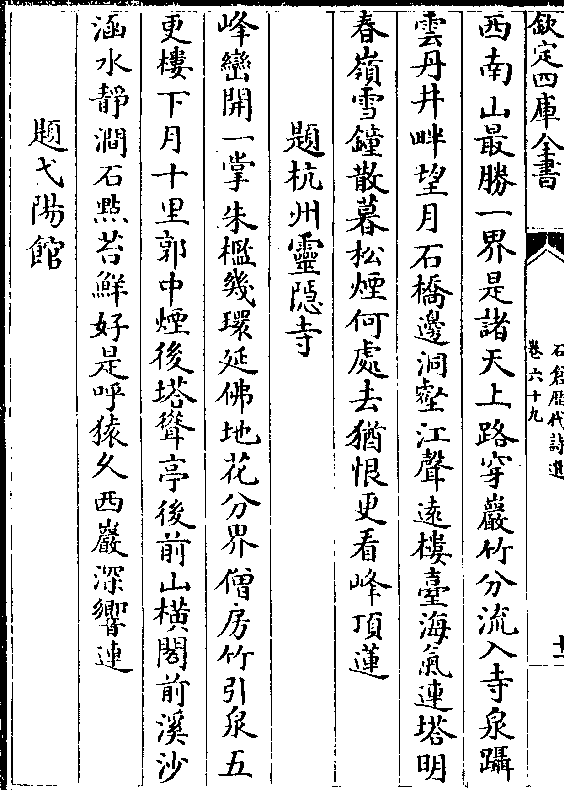 欽定四庫全書
石倉歷代詩選
卷六十九
十二
西南山最勝一界是諸天上路穿巖竹分流入寺泉躡
雲丹井畔望月石橋邊洞壑江聲遠樓臺海氣連塔明
春嶺雪鐘散暮松煙何處去猶恨更看峰頂蓮
題杭州靈隱寺
峰巒開一掌朱檻幾環延佛地花分界僧房竹引泉五
更樓下月十里郭中煙後塔聳亭後前山橫閣前溪沙
涵水靜澗石點苔鮮好是呼猿乆西巖深響連
題弋陽館